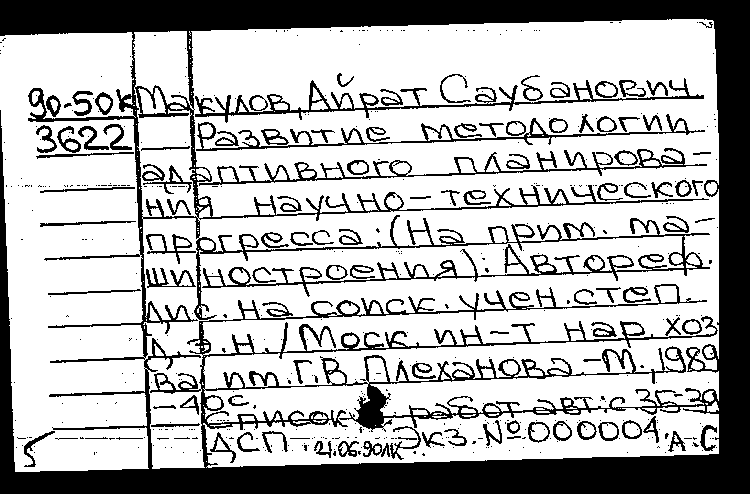 90-50к Макулов, Айрат Саубанович
3622 Развитие методологии
адаптивного планирова-
ния научно-технического
прогресса: (На прим. ма-
шиностроения): Автореф.
дис. на соиск. учен. степ.
д.э.н./Моск. ин-т нар. хоз
ва им. Г.В. Плеханова -М., 1989
-40с.
Список работ авт: с 35-39
ДСП. 21.06.90 Экз. №000004. А.С
5